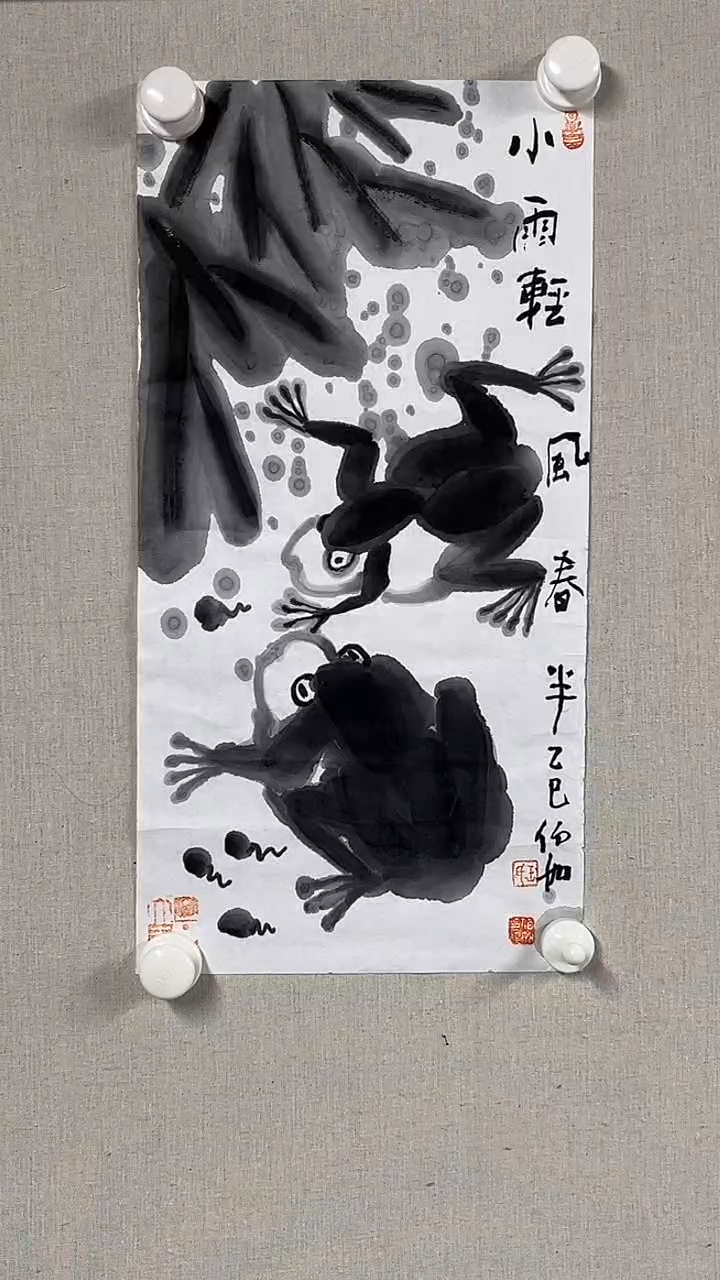 小雨輕風春半乙巳伯加